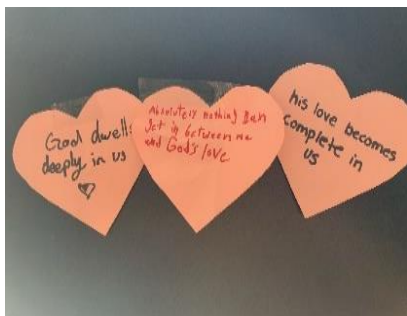 God dwells
deeply in us
Absolutely nothing can
get in between me
and God's love
his love becomes
complete in
us